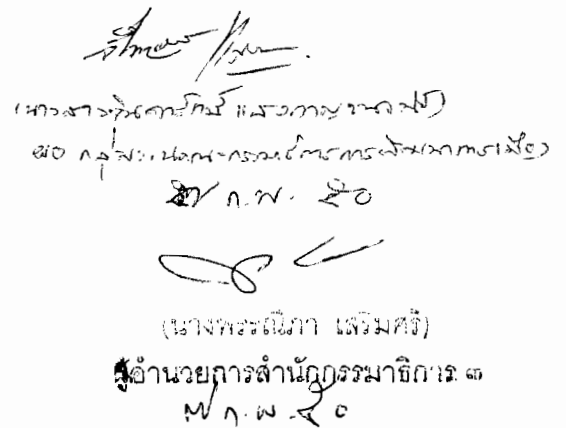 (นางสาวจินดารัตน์ แสงกาญจนวนิช)
ผอ กลุ่มงานคณะกรรมาธิการการพัฒนาการเมือง
๗ ก.พ. ๕๐
(นางพรรณิภา เสริมศรี)
ผู้อำนวยการสำนักกรรมาธิการ ๓
๗ ก.พ. ๕๐